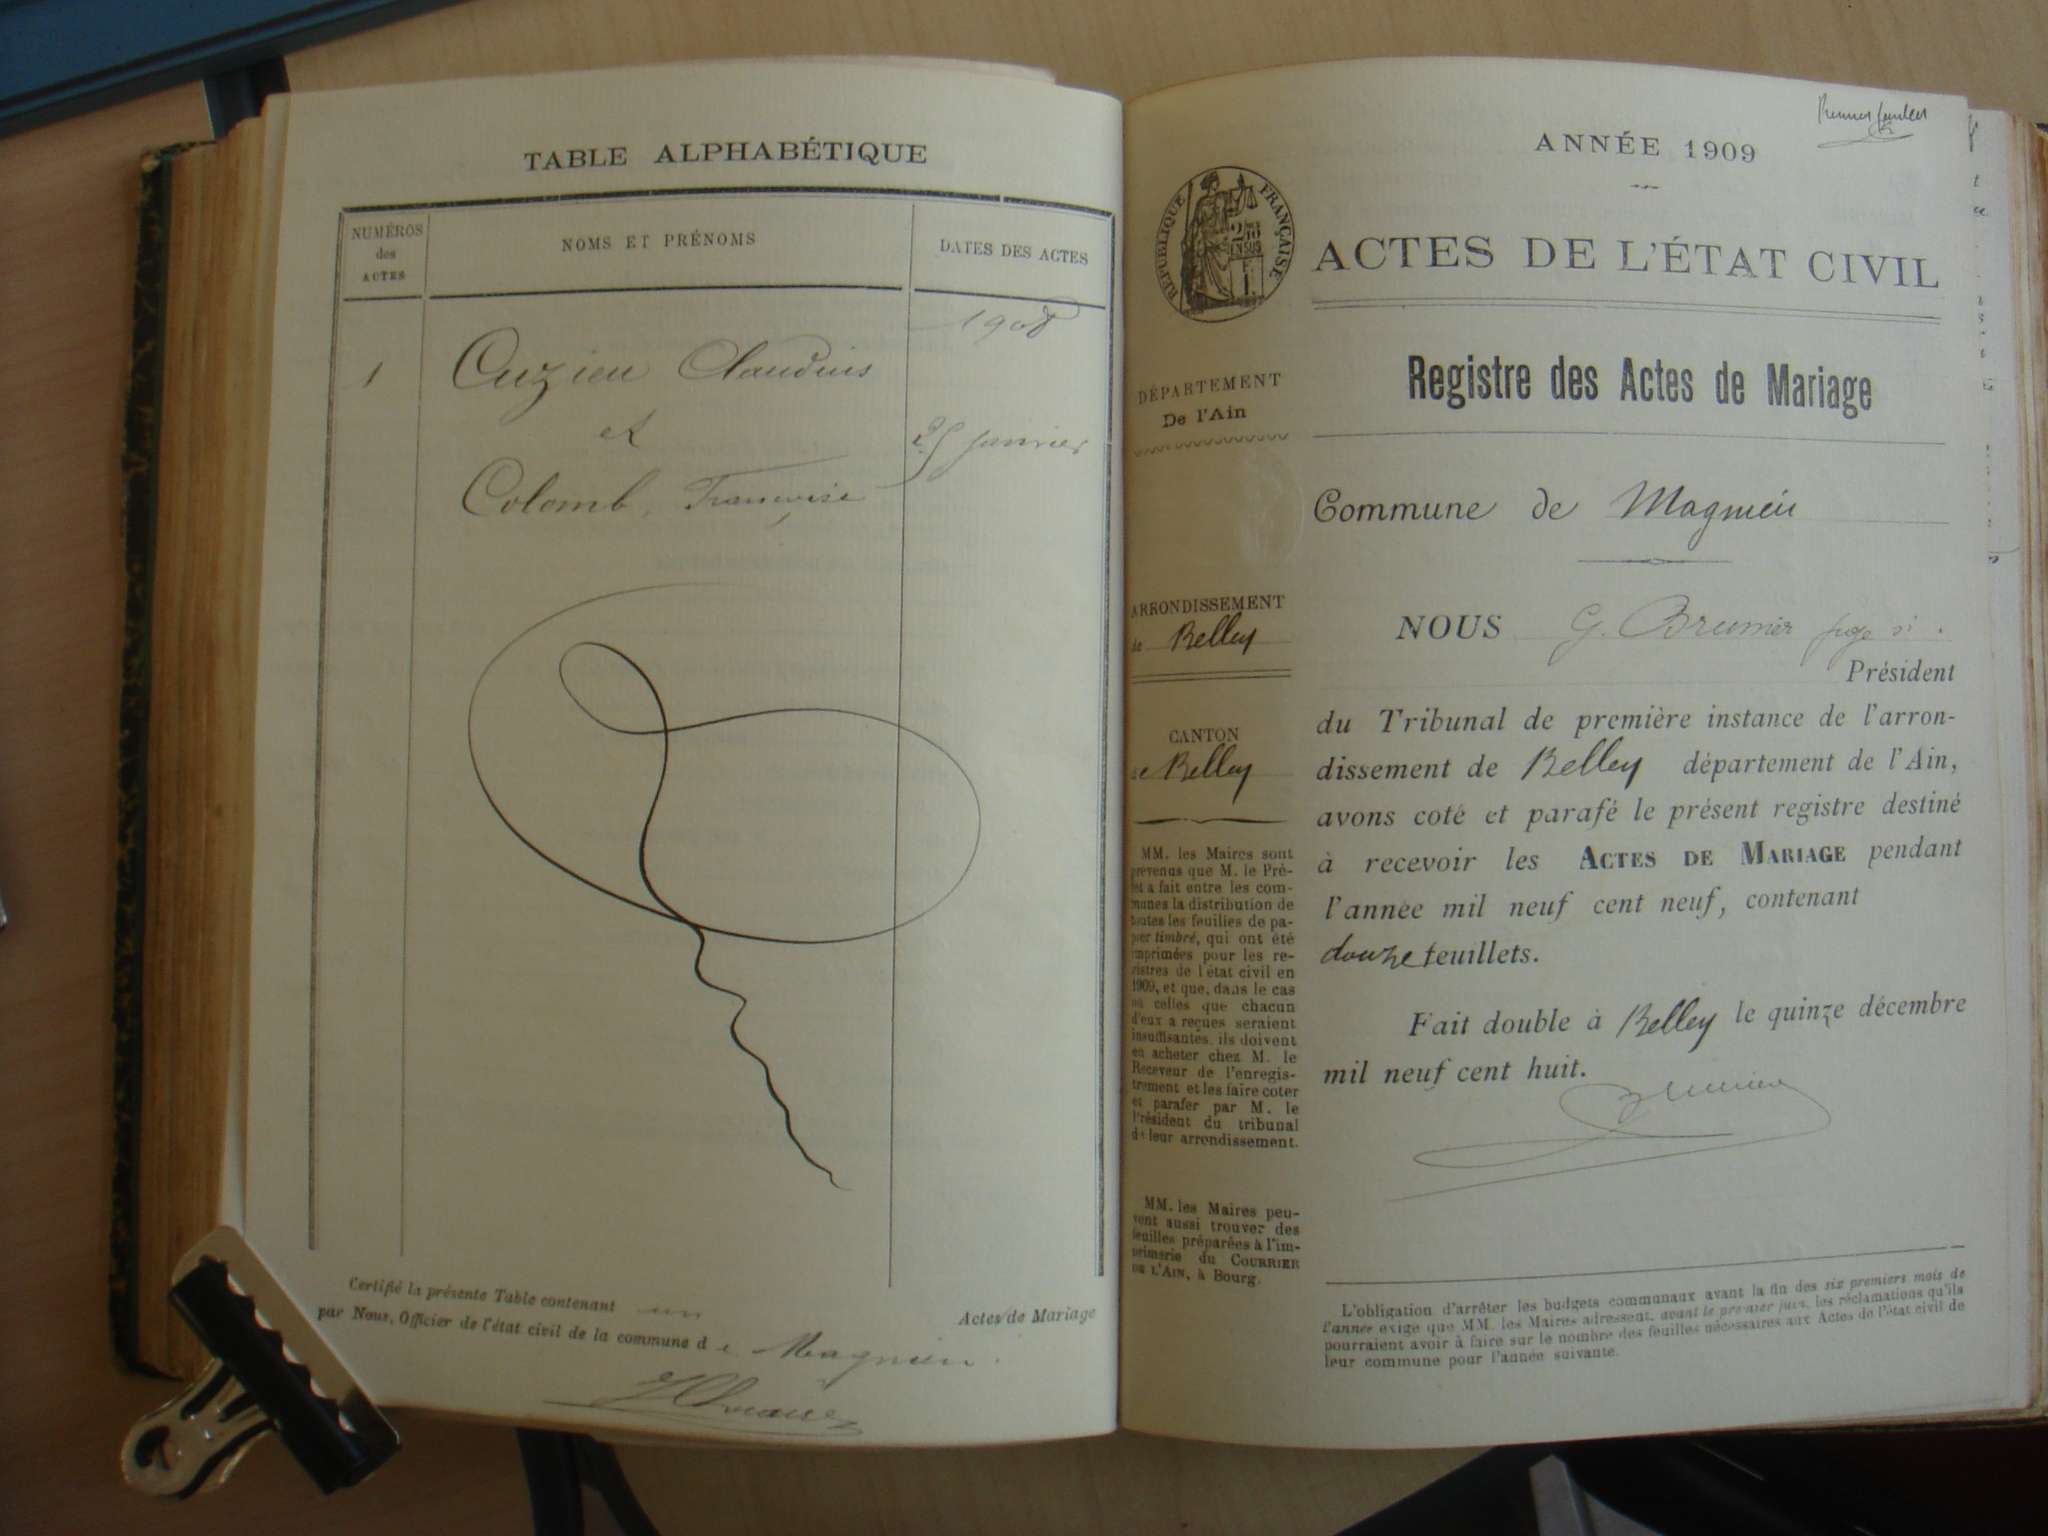 TABLE ALPHABÉTIQUE
NUMÉROS
des
ACTES
NOMS ET PRÉNOMS
DATES DES ACTES
1908
1
Cuzieu Claudius
et
25 janvier
Colomb, Françoise
Certifié la présente Table contenant un Actes de Mariage
par Nous, Officier de l'état civil de la commune de Magnieu.
ANNÉE 1909
RÉPUBLIQUE FRANÇAISE
ACTES DE L'ÉTAT CIVIL
Registre des Actes de Mariage
DÉPARTEMENT
De l'Ain
Commune de Magnieu
ARRONDISSEMENT
de Belley
CANTON
de Belley
MM. les Maires sont
prévenus que M. le Pré-
fet a fait entre les com-
munes la distribution de
toutes les feuilles de pa-
pier timbré, qui ont été
imprimées pour les re-
gistres de l'état civil en
1909, et que, dans le cas
où celles que chacun
d'eux a reçues seraient
insuffisantes, ils doivent
en acheter chez M. le
Receveur de l'enregis-
trement et les faire coter
et parafer par M. le
Président du tribunal
de leur arrondissement.
MM. les Maires peu-
vent aussi trouver des
feuilles préparées à l'im-
primerie du COURRIER
DE L'AIN, à Bourg.
NOUS G. Brunier juge
Président
du Tribunal de première instance de l'arron-
dissement de Belley département de l'Ain,
avons coté et parafé le présent registre destiné
à recevoir les ACTES DE MARIAGE pendant
l'année mil neuf cent neuf, contenant
douze feuillets.
Fait double à Belley le quinze décembre
mil neuf cent huit.
Brunier
L'obligation d'arrêter les budgets communaux avant la fin des six premiers mois de
l'année exige que MM. les Maires adressent, avant le premier juin, les réclamations qu'ils
pourraient avoir à faire sur le nombre des feuilles nécessaires aux Actes de l'état civil de
leur commune pour l'année suivante.